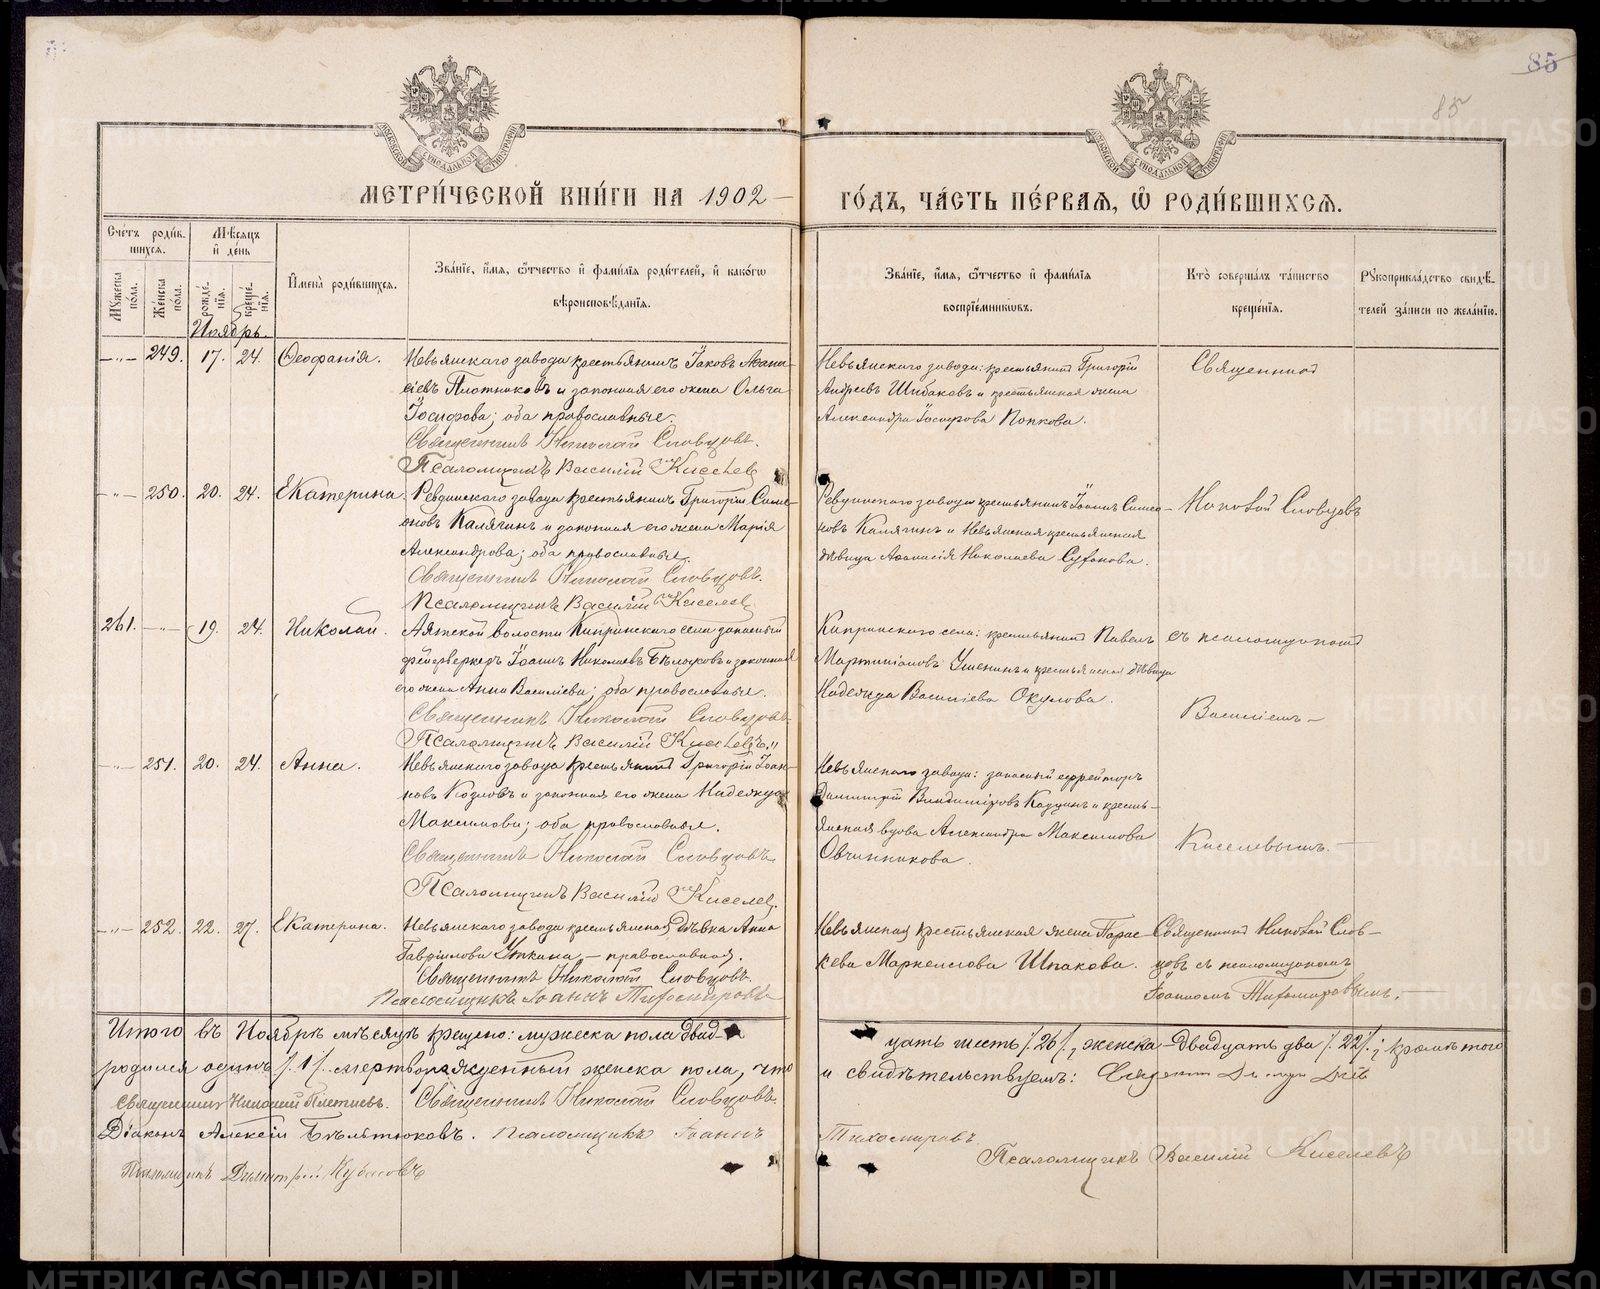 85
85
МЕТРИ́ЧЕСКОЙ КНИ́ГИ НА 1902 —
ГО́ДЪ, ЧА́СТЬ ПЕ́РВАѦ, Ѡ РОДИ́ВШИХСѦ.
Сче́тъ роди́в-
шихся.
Мѣ́сяцъ
и де́нь
Му́жеска по́ла.
Же́нска по́ла.
рожде́нія.
креще́нія.
Имена̀ роди́вшихся.
Зва́ніе, и́мя, ѻ́тчество и фами́лія роди́телей, и како́гѡ
вѣроисповѣ́данія.
Зва́ніе, и́мя, ѻ́тчество и фами́лія
воспріе́мниковъ.
Кто̀ соверша́лъ та́инство
креще́нія.
Рукоприкла́дство свидѣ́-
телей за́писи по жела́нію.
Ноябрь.
—"— 249. 17. 24. Ѳеофанія.
Невьянскаго завода крестьянинъ Іаковъ Аѳана-
сіевъ Плотниковъ и законная его жена Ольга
Іосифова; оба православные.
Священникъ Николай Словцовъ.
Псаломщикъ Василій Киселев
Невьянскаго завода: крестьянинъ Григорій
Андреевъ Шибаковъ и крестьянская жена
Александра Іосифова Попкова.
Священникъ
—"— 250. 20. 24. Екатерина.
Ревдинскаго завода крестьянинъ Григорій Симе-
оновъ Калягинъ и законная его жена Марія
Александрова; оба православные.
Священникъ Николай Словцовъ.
Псаломщикъ Василій Киселев
Ревдинскаго завода крестьянинъ Іоаннъ Симео-
новъ Калягинъ и Невьянская крестьянская
дѣвица Аѳанасія Николаева
Николай Словцовъ
261. —"— 19. 24. Николай.
Аятской волости Кипринскаго села запасный
фейерверкеръ Іоаннъ Николаевъ и законная
его жена Анна Васильева; оба православные.
Священникъ Николай Словцовъ.
Псаломщикъ Василій Киселевъ.
Кипринскаго села: крестьянинъ Павелъ
Мартиніановъ и крестьянская дѣвица
Надежда Васильева Окулова.
съ псаломщикомъ
Василіемъ —
—"— 251. 20. 24. Анна.
Невьянскаго завода крестьянинъ Григорій Іоан-
новъ Козловъ и законная его жена Надежда
Максимова; оба православные.
Священникъ Николай Словцовъ.
Псаломщикъ Василій Киселев.
Невьянскаго завода: запасный ефрейторъ
Димитрій Владиміровъ и кресть-
янская вдова Александра Максимова
Овчинникова.
Киселевымъ. —
—"— 252. 22. 27. Екатерина.
Невьянскаго завода крестьянская дѣвка Анна
Гавріилова Уткина, — православная.
Священникъ Николай Словцовъ.
Псаломщикъ Іоаннъ Тихомировъ
Невьянская крестьянская жена Парас-
кева Маркеллова Шпакова.
Священникъ Николай Слов-
цовъ съ псаломщикомъ
Іоанномъ Тихомировымъ. —
Итого въ Ноябрѣ мѣсяцѣ крещено: мужеска пола двад-
цать шесть /.26/., женска — двадцать два /.22/.; кромѣ того
родился одинъ /.1/. мертворожденный женска пола, что
и свидѣтельствуемъ:
Священникъ Николай Плетневъ. Священникъ Николай Словцовъ.
Діаконъ Алексій. Псаломщикъ Іоаннъ
Тихомировъ.
Псаломщикъ Василій Киселевъ
Псаломщикъ Димитрій Кубасовъ
METRIKI.GASO-URAL.RU